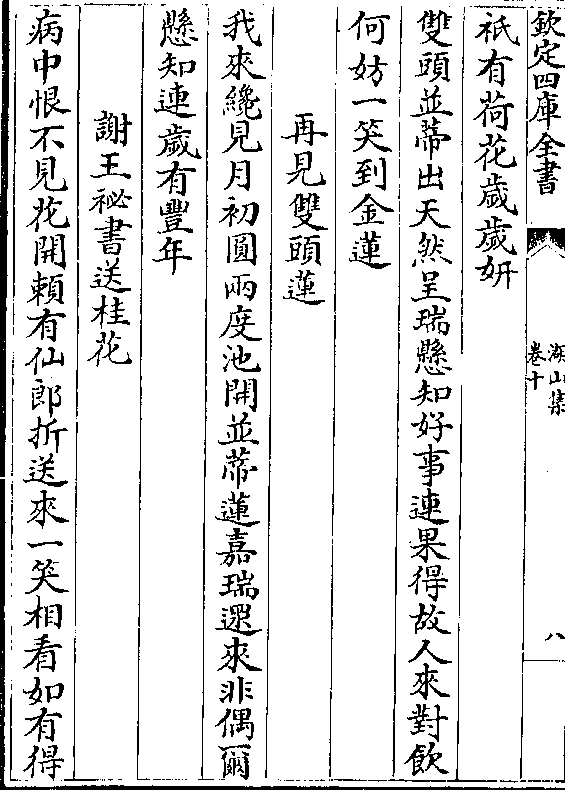 欽定四庫全書
湖山集
卷十
八
祇有荷花歲歲妍
雙頭並蔕出天然呈瑞懸知好事連果得故人來對飲
何妨一笑到金蓮
再見雙頭蓮
我來纔見月初圓兩度池開並蔕蓮嘉瑞還來非偶爾
懸知連歲有豐年
謝王祕書送桂花
病中恨不見花開賴有仙郎折送來一笑相看如有得